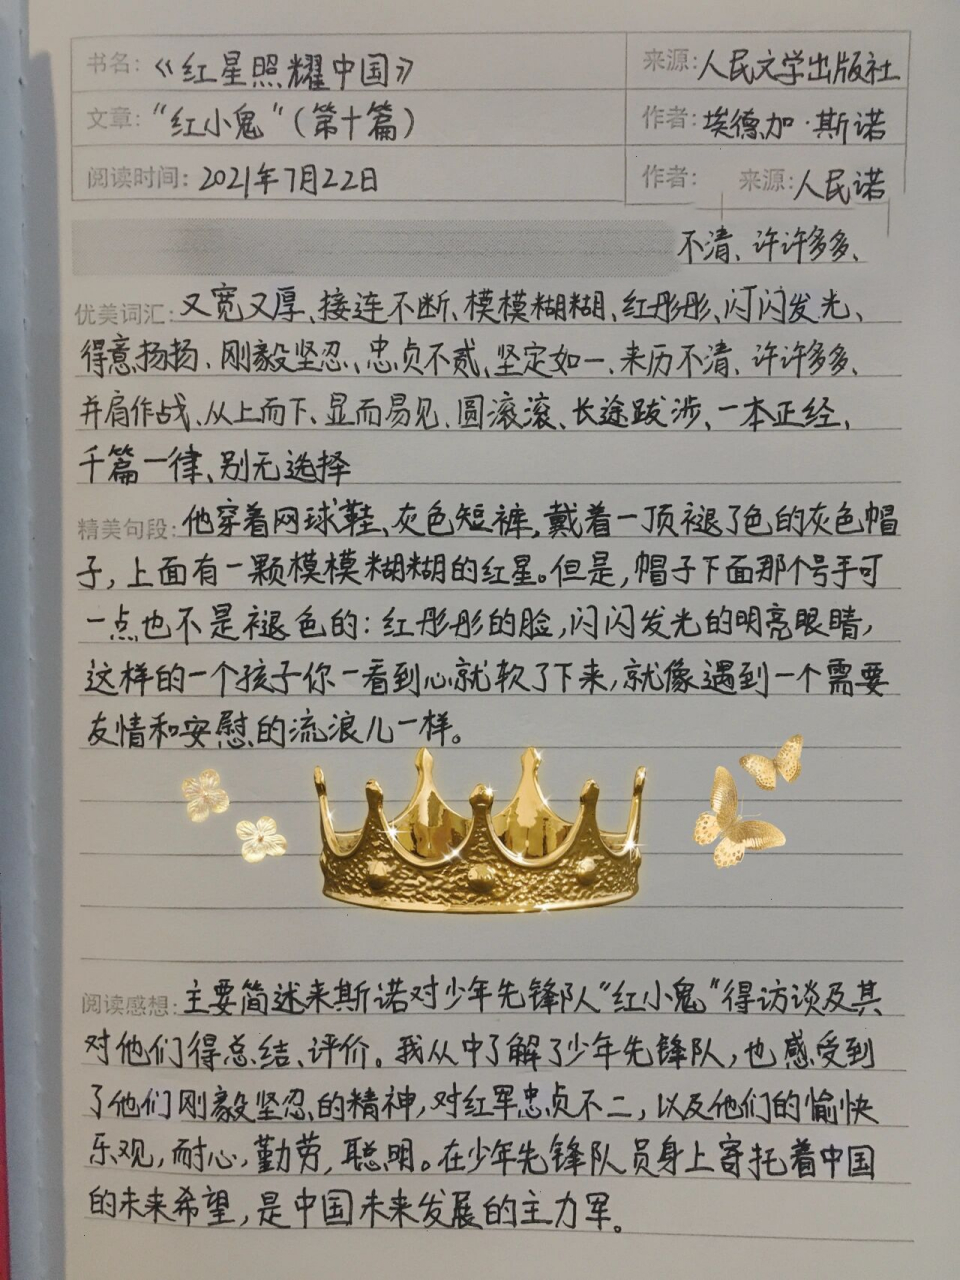 书名:《红星照耀中国》 来源:人民文学出版社
文章:“红小鬼”(第十篇) 作者:埃德加·斯诺
阅读时间:2021年7月22日 作者: 来源:人民诺
不清、许许多多、
优美词汇:又宽又厚、接连不断、模模糊糊、红彤彤、闪闪发光、
得意扬扬、刚毅坚忍、忠贞不贰、坚定如一、来历不清、许许多多、
并肩作战、从上而下、显而易见、圆滚滚、长途跋涉、一本正经、
千篇一律、别无选择
精美句段:他穿着网球鞋、灰色短裤,戴着一顶褪了色的灰色帽
子,上面有一颗模模糊糊的红星。但是,帽子下面那个号手可
一点也不是褪色的:红彤彤的脸,闪闪发光的明亮眼睛,
这样的一个孩子你一看到心就软了下来,就像遇到一个需要
友情和安慰的流浪儿一样。
阅读感想:主要简述来斯诺对少年先锋队“红小鬼”得访谈及其
对他们得总结、评价。我从中了解了少年先锋队,也感受到
了他们刚毅坚忍的精神,对红军忠贞不二,以及他们的愉快
乐观,耐心,勤劳,聪明。在少年先锋队员身上寄托着中国
的未来希望,是中国未来发展的主力军。